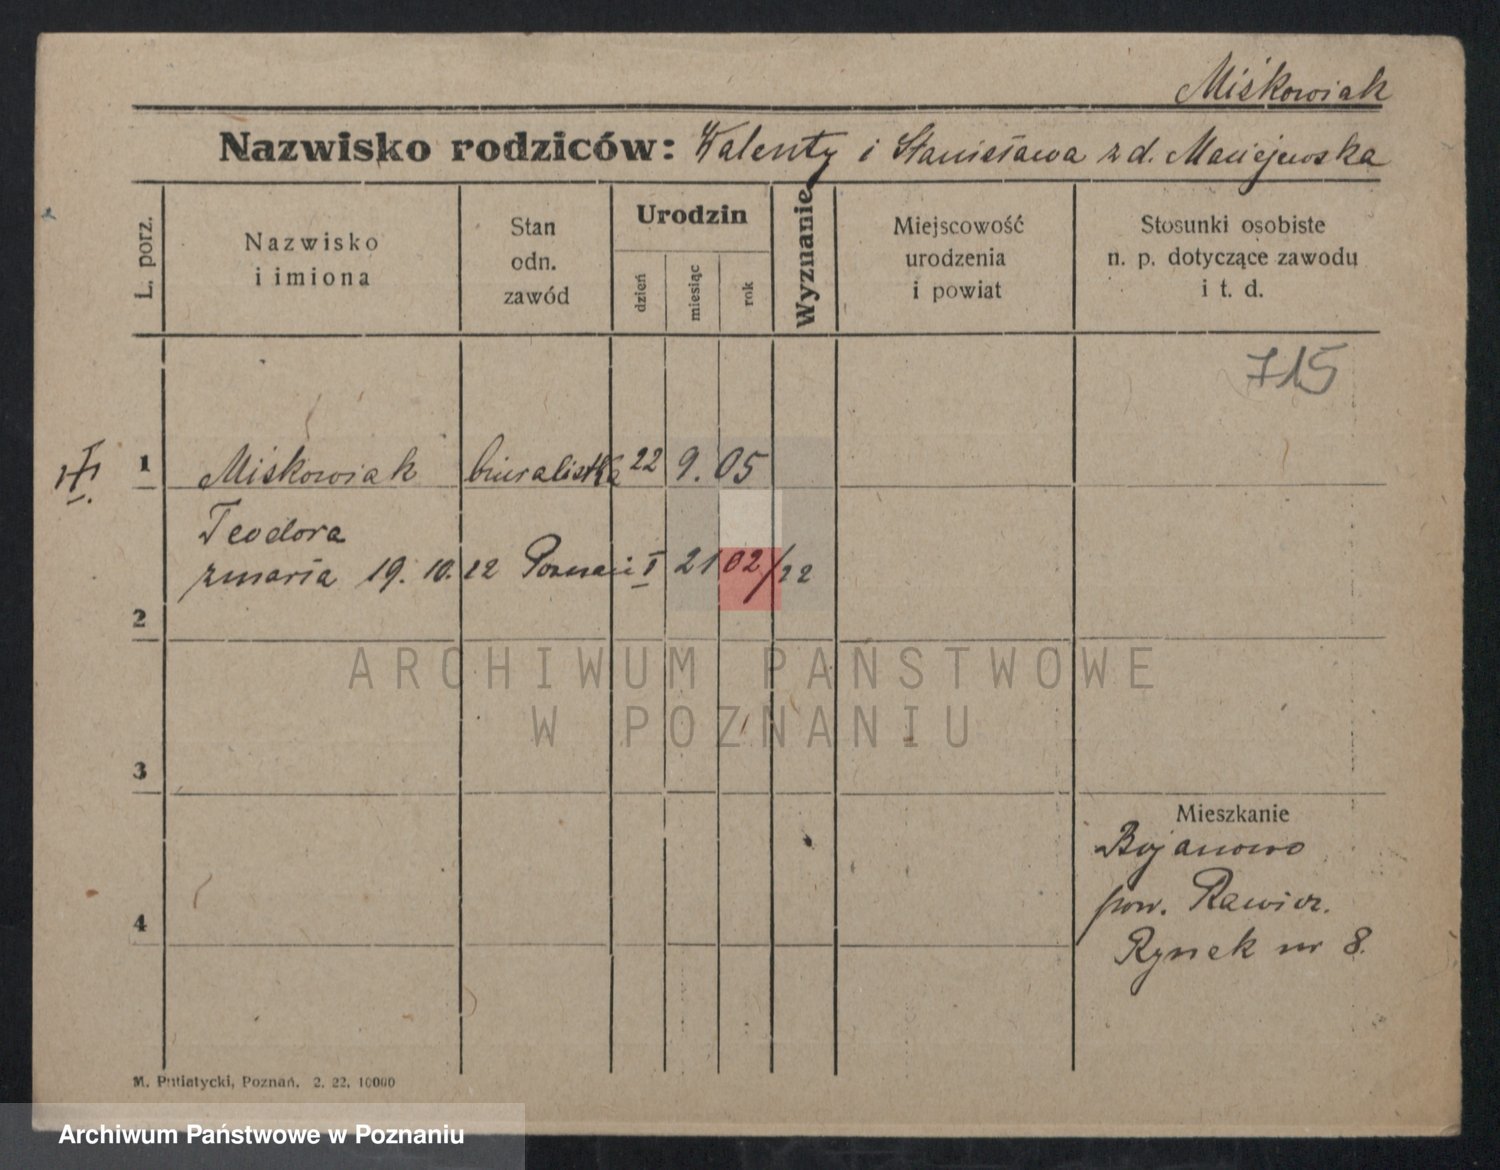 Miśkowiak
Nazwisko rodziców: Walenty i Stanisława z d. Maciejewska
L. porz.
Nazwisko
i imiona
Stan
odn.
zawód
Urodzin
dzień
miesiąc
rok
Wyznanie
Miejscowość
urodzenia
i powiat
Stosunki osobiste
n. p. dotyczące zawodu
i t. d.
715
1 Miśkowiak biuralistka 22 9. 05
Teodora
zmarła 19. 10. 22 Poznań I 2102/22
2
ARCHIWUM PAŃSTWOWE
W POZNANIU
3
Mieszkanie
Bojanowo
pow. Rawicz.
4
Rynek nr 8.
M. Putiatycki, Poznań. 2. 22. 10000
Archiwum Państwowe w Poznaniu